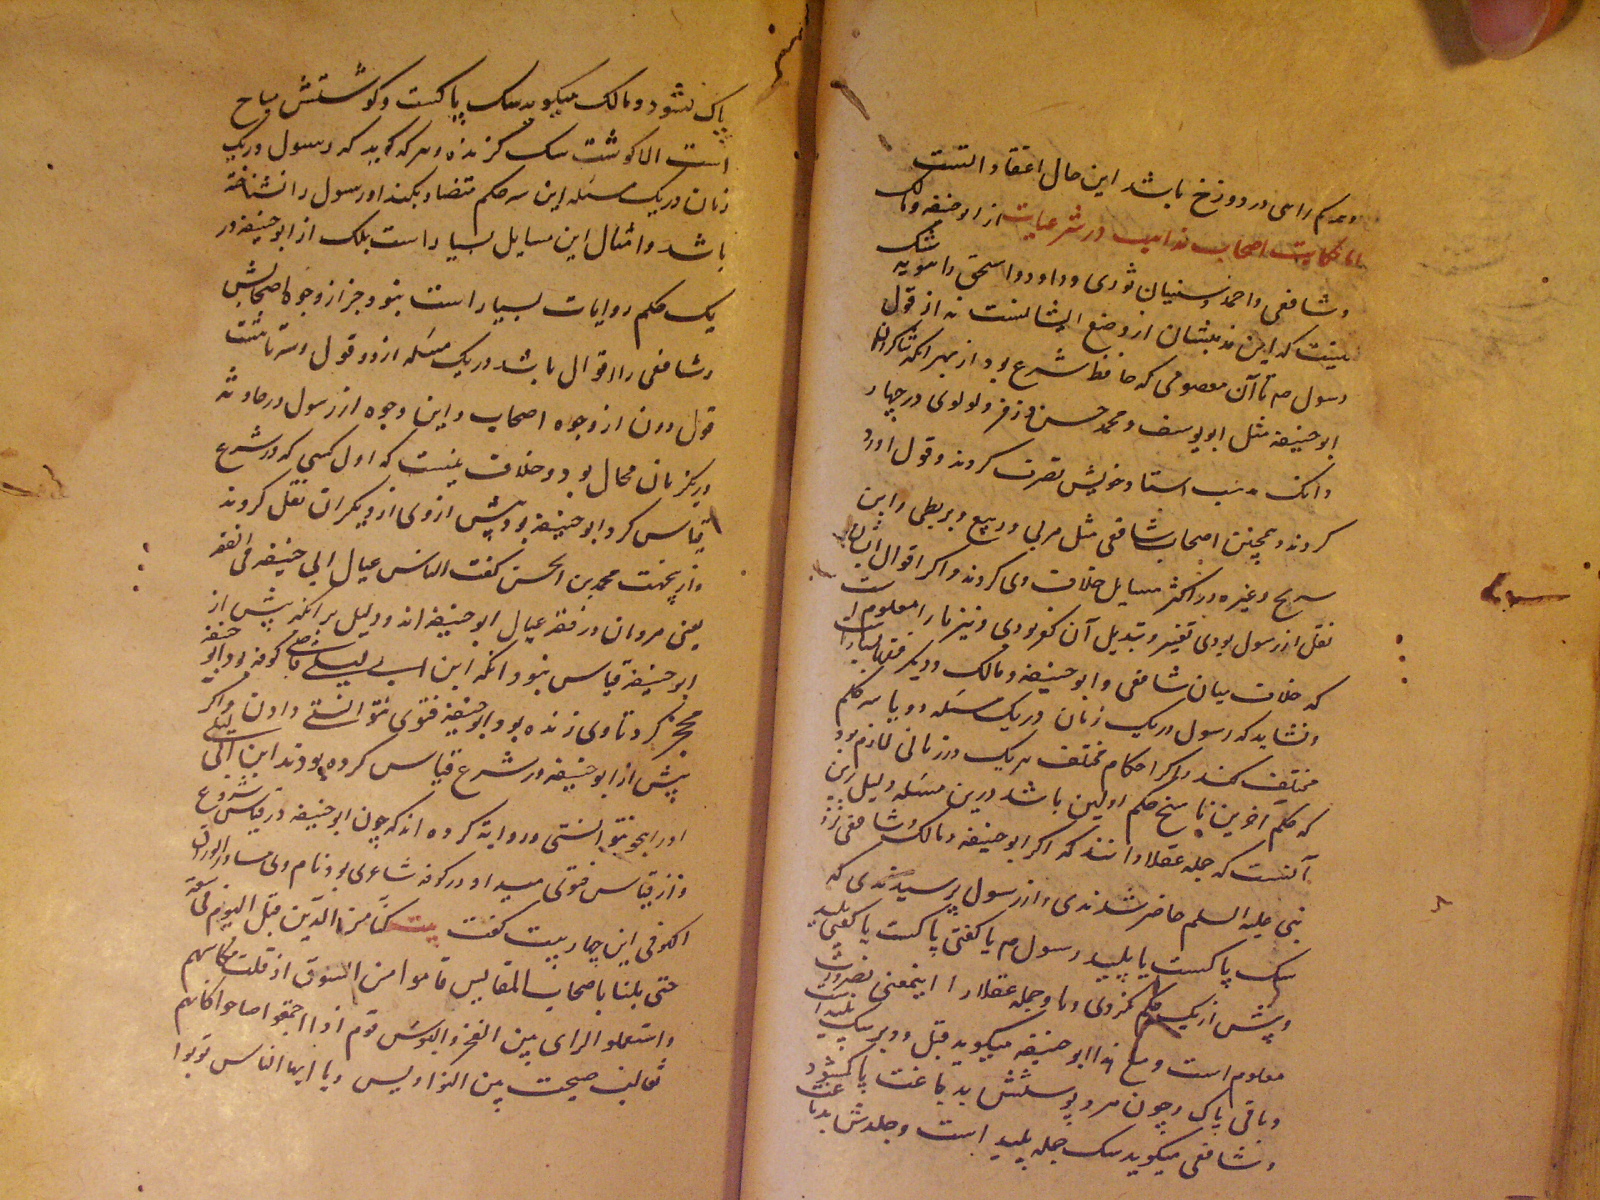 و مردم را سی در دوزخ باشد این حال اعتقاد اتست
اما حکایت اصحاب مذاهب در شرعیات از ابو حنیفه و مالک
و شافعی و احمد و سفیان ثوری و داود و اسحق راهویه شک
نیست که این مذهبشان از وضع ایشانست نه از قول
رسول صم تا آن معصومی که حافظ شرع بود از بهر انکه شاکردان
ابو حنیفه مثل ابو یوسف و محمد حسن و زفر و لولوی در چهار
دانک مذهب استاد خویش تصرف کردند و قول او رد
کردند و همچنین اصحاب شافعی مثل مزنی و ربیع و بریطی و ابن
سریج و غیره در اکثر مسایل خلاف وی کردند و اکر اقوال ایشان
نقل از رسول بودی تغییر و تبدیل آن کفر بودی و نیز ما را معلوم است
که خلاف میان شافعی و ابو حنیفه و مالک و دیکر فقها بسیار است
و نشاید که رسول در یک زمان در یک مسئله دو یا سه حکم
مختلف کند و اکر احکام مختلف هر یک در زمانی لازم بود
که حکم آخرین ناسخ حکم اولین باشد درین مسئله و دلیل برین
آنست که جمله عقلا دانند که اکر ابو حنیفه و مالک و شافعی نزد
نبی علیه السلم حاضر شدندی و از رسول پرسیدندی که
سک پاکست یا پلید رسول صم یا کفتی پاکست یا کفتی پلید
و پیش از یک حکم نکردی و ما و جمله عقلا را اینمعنی بضرورت
معلوم است و مع هذا ابو حنیفه میکوید قبل و دبر سک پلید است
و باقی پاک و چون مرد پوستش بدباغت پاک شود
و شافعی میکوید سک جمله پلید است و جلدش بدباغت
پاک نشود و مالک میکوید سک پاکست و کوشتش مباح
است الا کوشت سک کزنده و هر که کوید که رسول در یک
زمان در یک مسئله این سه حکم متضاد بکند او رسول را نشناخته
باشد و امثال این مسایل بسیار است بلک از ابو حنیفه در
یک حکم روایات بسیار است بنود جز از وجوه اصحابش
و شافعی را اقوال باشد در یک مسئله از دو قول و سه تا هشت
قول دون از وجوه اصحاب و این وجوه از رسول در حادثه
در یکزمان محال بود و خلاف نیست که اول کسی که در شرع
قیاس کرد ابو حنیفه بود پیش از وی از دیکران نقل کردند
و از یجهت محمد بن الحسن کفت الناس عیال ابی حنیفه فی الفقه
یعنی مردمان در فقه عیال ابو حنیفه اند و دلیل بر انکه پیش از
ابو حنیفه قیاس نبود انکه ابن ابی لیلی قاضی کوفه بود ابو حنیفه
محجر کرد تا وی زنده بود ابو حنیفه فتوی نتوانستی دادن و اکر
پیش از ابو حنیفه در شرع قیاس کرده بودند ابن ابی لیلی
او را حجر نتوانستی و روایة کرده اند که چون ابو حنیفه در قیاس شروع
و از قیاس فتوی میداد در کوفه شاعری بود نام وی مساور الوراق
الکوفی این چهار بیت کفت بیت کنا من الدین قبل الیوم فی سعة
حتی بلینا باصحاب المقاییس قاموا من السوق اذ قلت مکاسبهم
و استعملوا الرای بین الفقر و البوس قوم اذا اجتمعوا صاحوا کانهم
ثعالب صبحت بین النواویس و یا ایها الناس توبوا